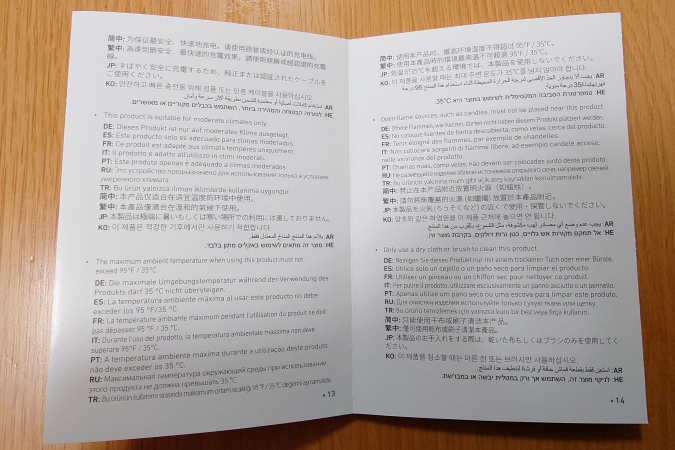 简中: 为保证最安全、快速地充电，请使用原装或经认证的充电线。
繁中: 為達到最安全、最快速的充電效果，請使用原廠或經認證的充電
線。
JP: すばやく安全に充電するため、純正または認証されたケーブルを
ご使用ください。
KO: 안전하고 빠른 충전을 위해 정품 또는 인증 케이블을 사용하십시오.
AR: استخدم كابلات أصلية أو معتمدة للشحن بطريقة أكثر سرعة وأمان.
HE: לטעינה הבטוחה והמהירה ביותר, השתמש בכבלים מקוריים או מאושרים.
• This product is suitable for moderate climates only.
DE: Dieses Produkt ist nur auf moderates Klima ausgelegt.
ES: Este producto solo es adecuado para climas moderados.
FR: Ce produit est adapté aux climats tempérés uniquement.
IT: Il prodotto è adatto all'utilizzo in climi moderati.
PT: Este produto apenas é adequado a climas moderados.
RU: Это устройство предназначено для использования только в условиях
умеренного климата.
TR: Bu ürün yalnızca ılıman iklimlerde kullanıma uygundur.
简中: 本产品仅适合在适宜温度的环境中使用。
繁中: 本產品僅適合在溫和的氣候下使用。
JP: 本製品は極端に暑いもしくは寒い場所での利用には適しておりません。
KO: 이 제품은 적정한 기후에서만 사용하기 적합합니다.
AR: يلائم هذا المنتج المناخ المعتدل فقط.
HE: מוצר זה מתאים לשימוש באקלים מתון בלבד.
• The maximum ambient temperature when using this product must not
exceed 95°F / 35°C.
DE: Die maximale Umgebungstemperatur während der Verwendung des
Produkts darf 35 °C nicht übersteigen.
ES: La temperatura ambiente máxima al usar este producto no debe
exceder los 95 °F/35 °C.
FR: La température ambiante maximum pendant l'utilisation du produit ne doit
pas dépasser 95 °F / 35 °C.
IT: Durante l'uso del prodotto, la temperatura ambientale massima non deve
superare 95°F / 35°C.
PT: A temperatura ambiente maxima durante a utilização deste produto
não deve exceder os 35 °C.
RU: Максимальная температура окружающей среды при использовании
этого продукта не должна превышать 35 °C.
TR: Bu ürünün kullanımı sırasında maksimum ortam sıcaklığı 95 °F / 35 °C değerini aşmamalıdır.
• 13
简中: 使用本产品时，最高环境温度不得超过 95°F / 35°C。
繁中: 使用本產品時的環境最高溫不可超過 95°F / 35°C。
JP: 気温が35°Cを超える環境では、本製品を使用しないでください。
KO: 이 제품을 사용할 때는 최대 주변 온도가 35°C를 넘지 않아야 합니다.
AR: يجب ألا يتجاوز الحد الأقصى لدرجة الحرارة المحيطة أثناء استخدام هذا المنتج 95 درجة
فهرنهايت/35 درجة مئوية.
HE: טמפרטורת הסביבה המקסימלית לשימוש במוצר היא 35°C.
• Open flame sources, such as candles, must not be placed near this product.
DE: Offene Flammen, wie Kerzen, dürfen nicht neben diesem Produkt platziert werden.
ES: No coloque fuentes de llama descubierta, como velas, cerca del producto.
FR: Tenir éloigné des flammes, par exemple de chandelles.
IT: Non collocare sorgenti di fiamme libere, ad esempio candele accese,
nelle vicinanze del prodotto.
PT: Chamas nuas, como velas, não devem ser colocadas junto deste produto.
RU: Не размещайте изделие вблизи источников открытого огня, например свечей.
TR: Bu ürünün yakınına mum gibi açık ateş kaynakları konulmamalıdır.
简中: 禁止在本产品附近放置明火源（如蜡烛）。
繁中: 請勿將無覆蓋的火源 (如蠟燭) 放置於本產品附近。
JP: 本製品を火気(ろうそくなど)の近くで使用・保管しないでください。
KO: 양초와 같은 화염원을 이 제품 근처에 놓으면 안 됩니다.
AR: يجب عدم وضع أي مصادر لهب مكشوفة، مثل الشموع، بالقرب من هذا المنتج.
HE: אל תמקם מקורות אש גלויים, כגון נרות דולקים, בקרבת מוצר זה.
• Only use a dry cloth or brush to clean this product.
DE: Reinigen Sie dieses Produkt nur mit einem trockenen Tuch oder einer Bürste.
ES: Utilice solo un cepillo o un paño seco para limpiar el producto.
FR: Utiliser un pinceau ou un chiffon sec pour nettoyer ce produit.
IT: Per pulire il prodotto, utilizzare esclusivamente un panno asciutto o un pennello.
PT: Apenas utilize um pano seco ou uma escova para limpar este produto.
RU: Для очистки изделия используйте только сухую ткань или щетку.
TR: Bu ürünü temizlemek için yalnızca kuru bir bez veya fırça kullanın.
简中: 只能使用干布或刷子清洁本产品。
繁中: 僅可使用乾布或刷子清潔本產品。
JP: 本製品のお手入れをする際は、乾いた布もしくはブラシのみを使用してくだ
さい。
KO: 이 제품을 청소할 때는 마른 천 또는 브러시만 사용하십시오.
AR: استعن فقط بقطعة قماش جافة أو فرشة لتنظيف هذا المنتج.
HE: לניקוי מוצר זה, השתמש אך ורק במטלית יבשה או במברשת.
• 14